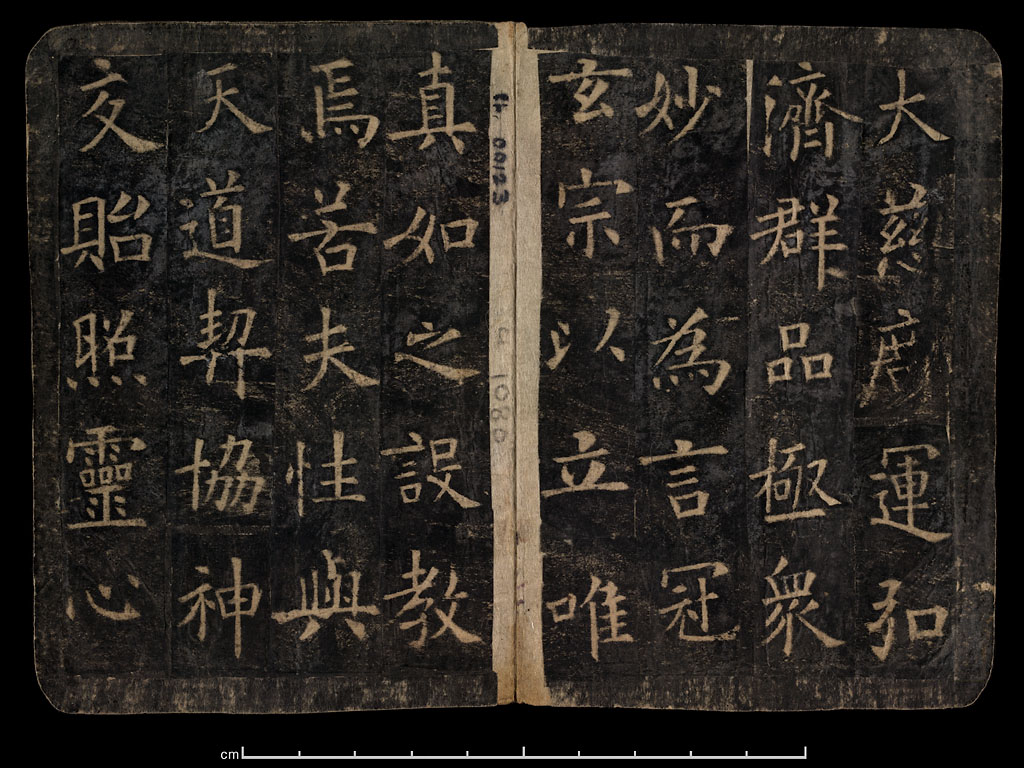 大慈廣運弘
濟群品極衆
妙而為言冠
玄宗以立唯
真如之設教
焉若夫性與
天道契協神
交貽照靈心
00123
1080
cm